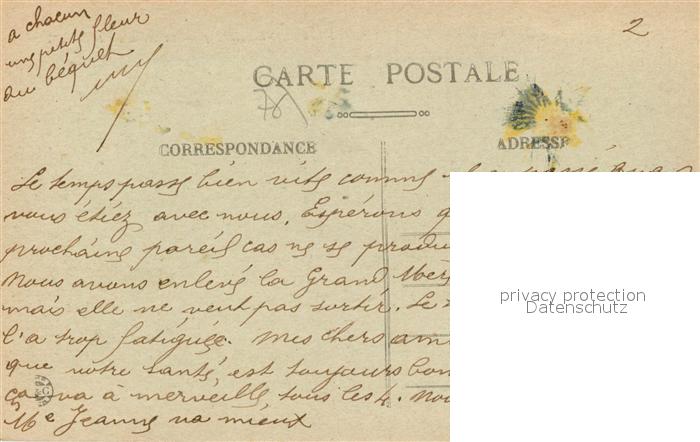 a chacun
une petite fleur
au béquet
2
CARTE POSTALE
78
CORRESPONDANCE
ADRESSE
Le temps passe bien vite comme
vous étiez avec nous. Espérons
prochaine pareil cas ne se
Nous avons enlevé la Grand
mais elle ne veut pas sortir. Le
l'a trop fatiguée. Mes chers
que votre santé est toujours
ça va à merveille tous les 4.
Me Jeanne va mieux
privacy protection
Datenschutz